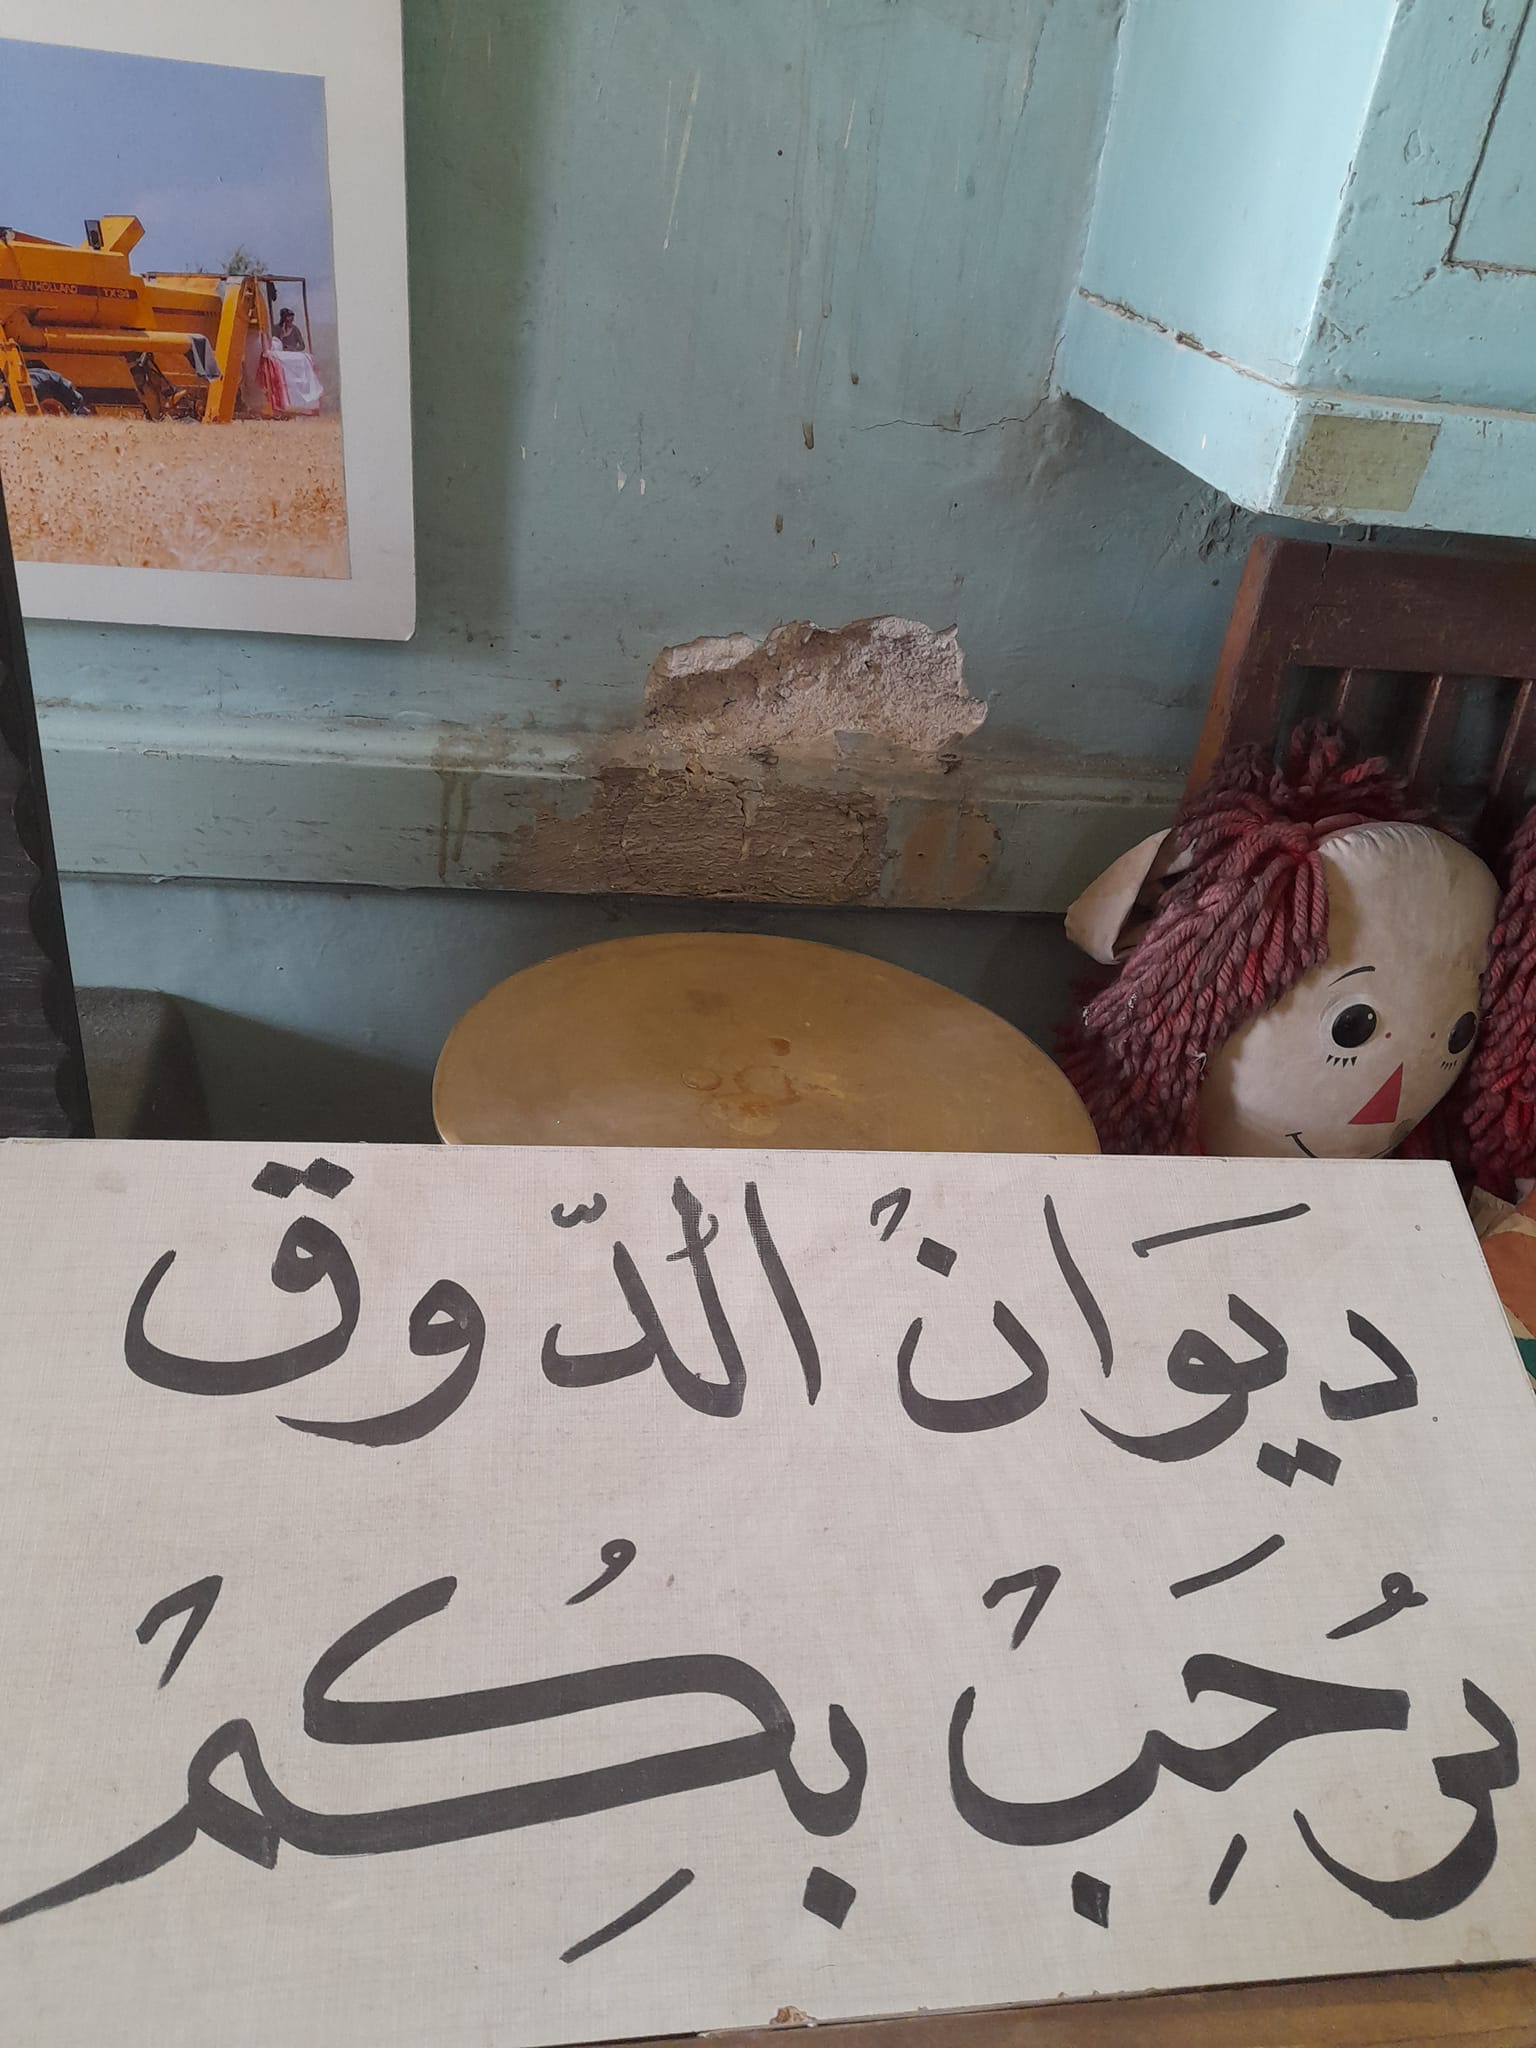 NEW HOLLAND TX34
ديوَانْ الدّوق
يرُحَِبْ بكُِمْ